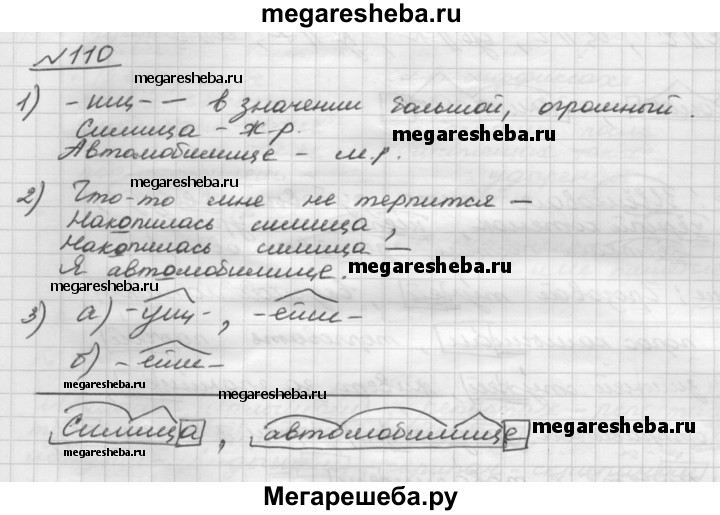 megaresheba.ru
№110
megaresheba.ru
1) -ищ- — в значении большой, огромный.
Силища - ж.р. megaresheba.ru
Автомобилище - м.р.
megaresheba.ru
2) Что-то мне не терпится —
Накопилась силища,
Накопилась силища —
Я автомобилище. megaresheba.ru
megaresheba.ru
3) а) -ущ-, -ейш-
б) -ейш-
megaresheba.ru megaresheba.ru
Силища, автомобилище megaresheba.ru
megaresheba.ru
Мегарешеба.ру